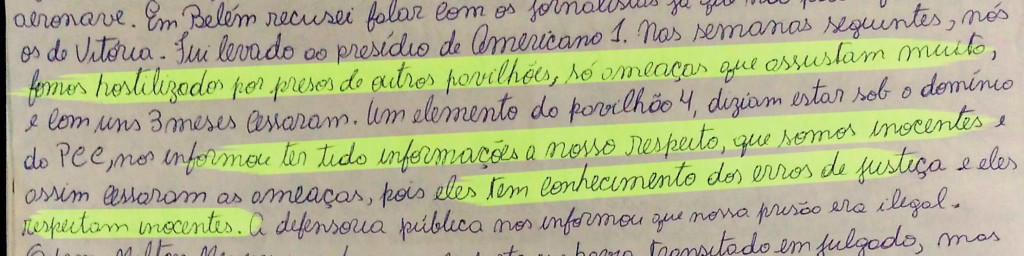 aeronave. Em Belém recusei falar com os jornalistas já que não
os de Vitória. Fui levado ao presídio de Americano 1. Nas semanas seguintes, nós
fomos hostilizados por presos de outros pavilhões, só ameaças que assustam muito,
e com uns 3 meses cessaram. Um elemento do pavilhão 4, diziam estar sob o domínio
do PCC, nos informou ter tido informações a nosso respeito, que somos inocentes e
assim cessaram as ameaças, pois eles tem conhecimento dos erros de justiça e eles
respeitam inocentes. A defensoria pública nos informou que nossa prisão era ilegal.
transitado em julgado, mas